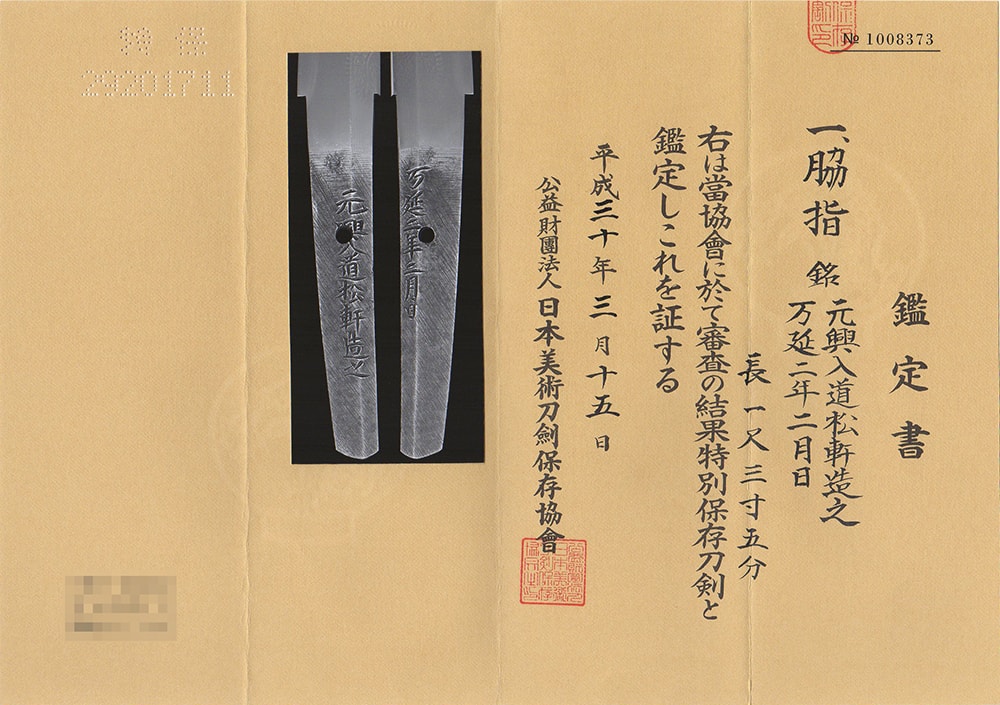 № 1008373
鑑定書
一、脇指 銘 元興入道松軒造之
万延二年二月日
長一尺三寸五分
右は當協會に於て審査の結果特別保存刀剣と
鑑定しこれを証する
平成三十年三月十五日
公益財團法人日本美術刀劍保存協會
万延二年二月日
元興入道松軒造之
29201711